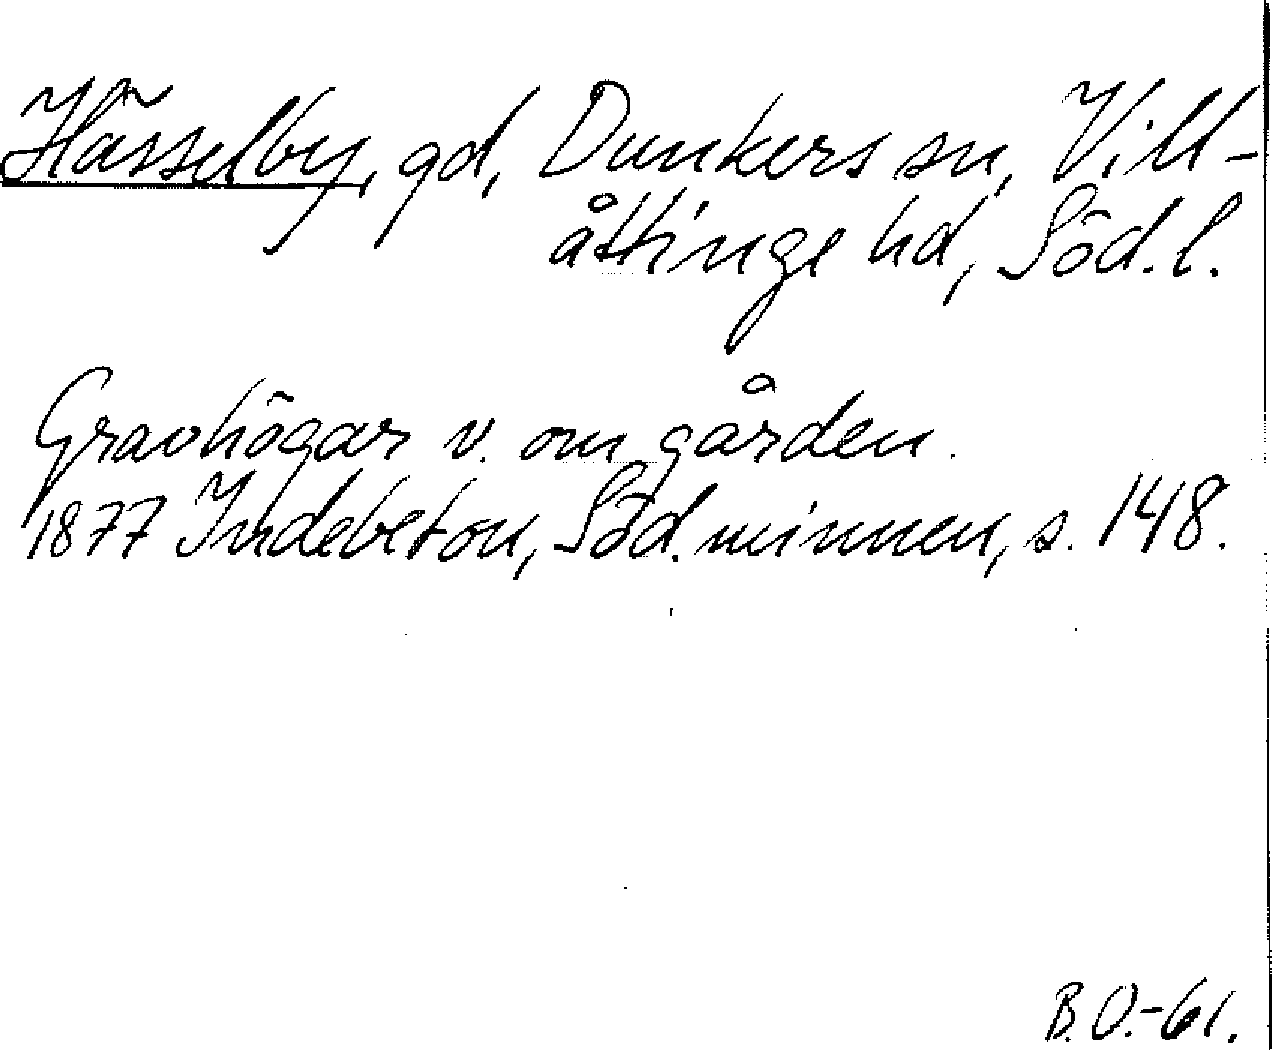 Hässelby, gd, Dunkers sn, Vill-
åttinge hd, Söd.l.
Gravhögar v. om gården.
1877 Indebetou, Söd.minnen, s. 148.
B.O.-61.